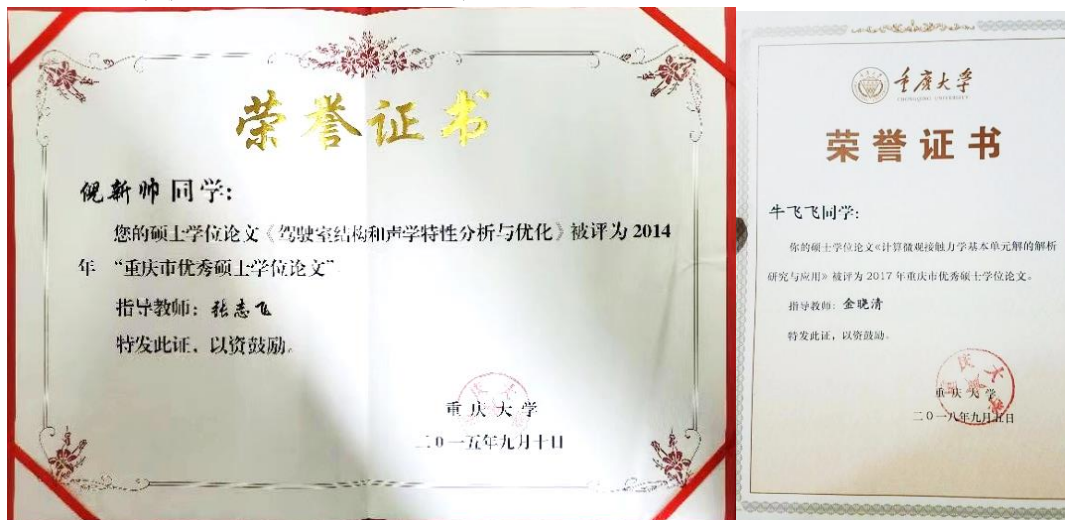 荣誉证书
倪新帅同学:
您的硕士学位论文《驾驶室结构和声学特性分析与优化》被评为 2014
年 “重庆市优秀硕士学位论文”
指导教师: 张志飞
特发此证, 以资鼓励。
重庆大学
二0一五年九月十日
重庆大学
CHONGQING UNIVERSITY
荣誉证书
牛飞飞同学:
你的硕士学位论文«计算微观接触力学基本单元解的解析
研究与应用» 被评为 2017 年重庆市优秀硕士学位论文。
指导教师: 金晓清
特发此证, 以资鼓励。
重庆大学
二0一八年九月五日